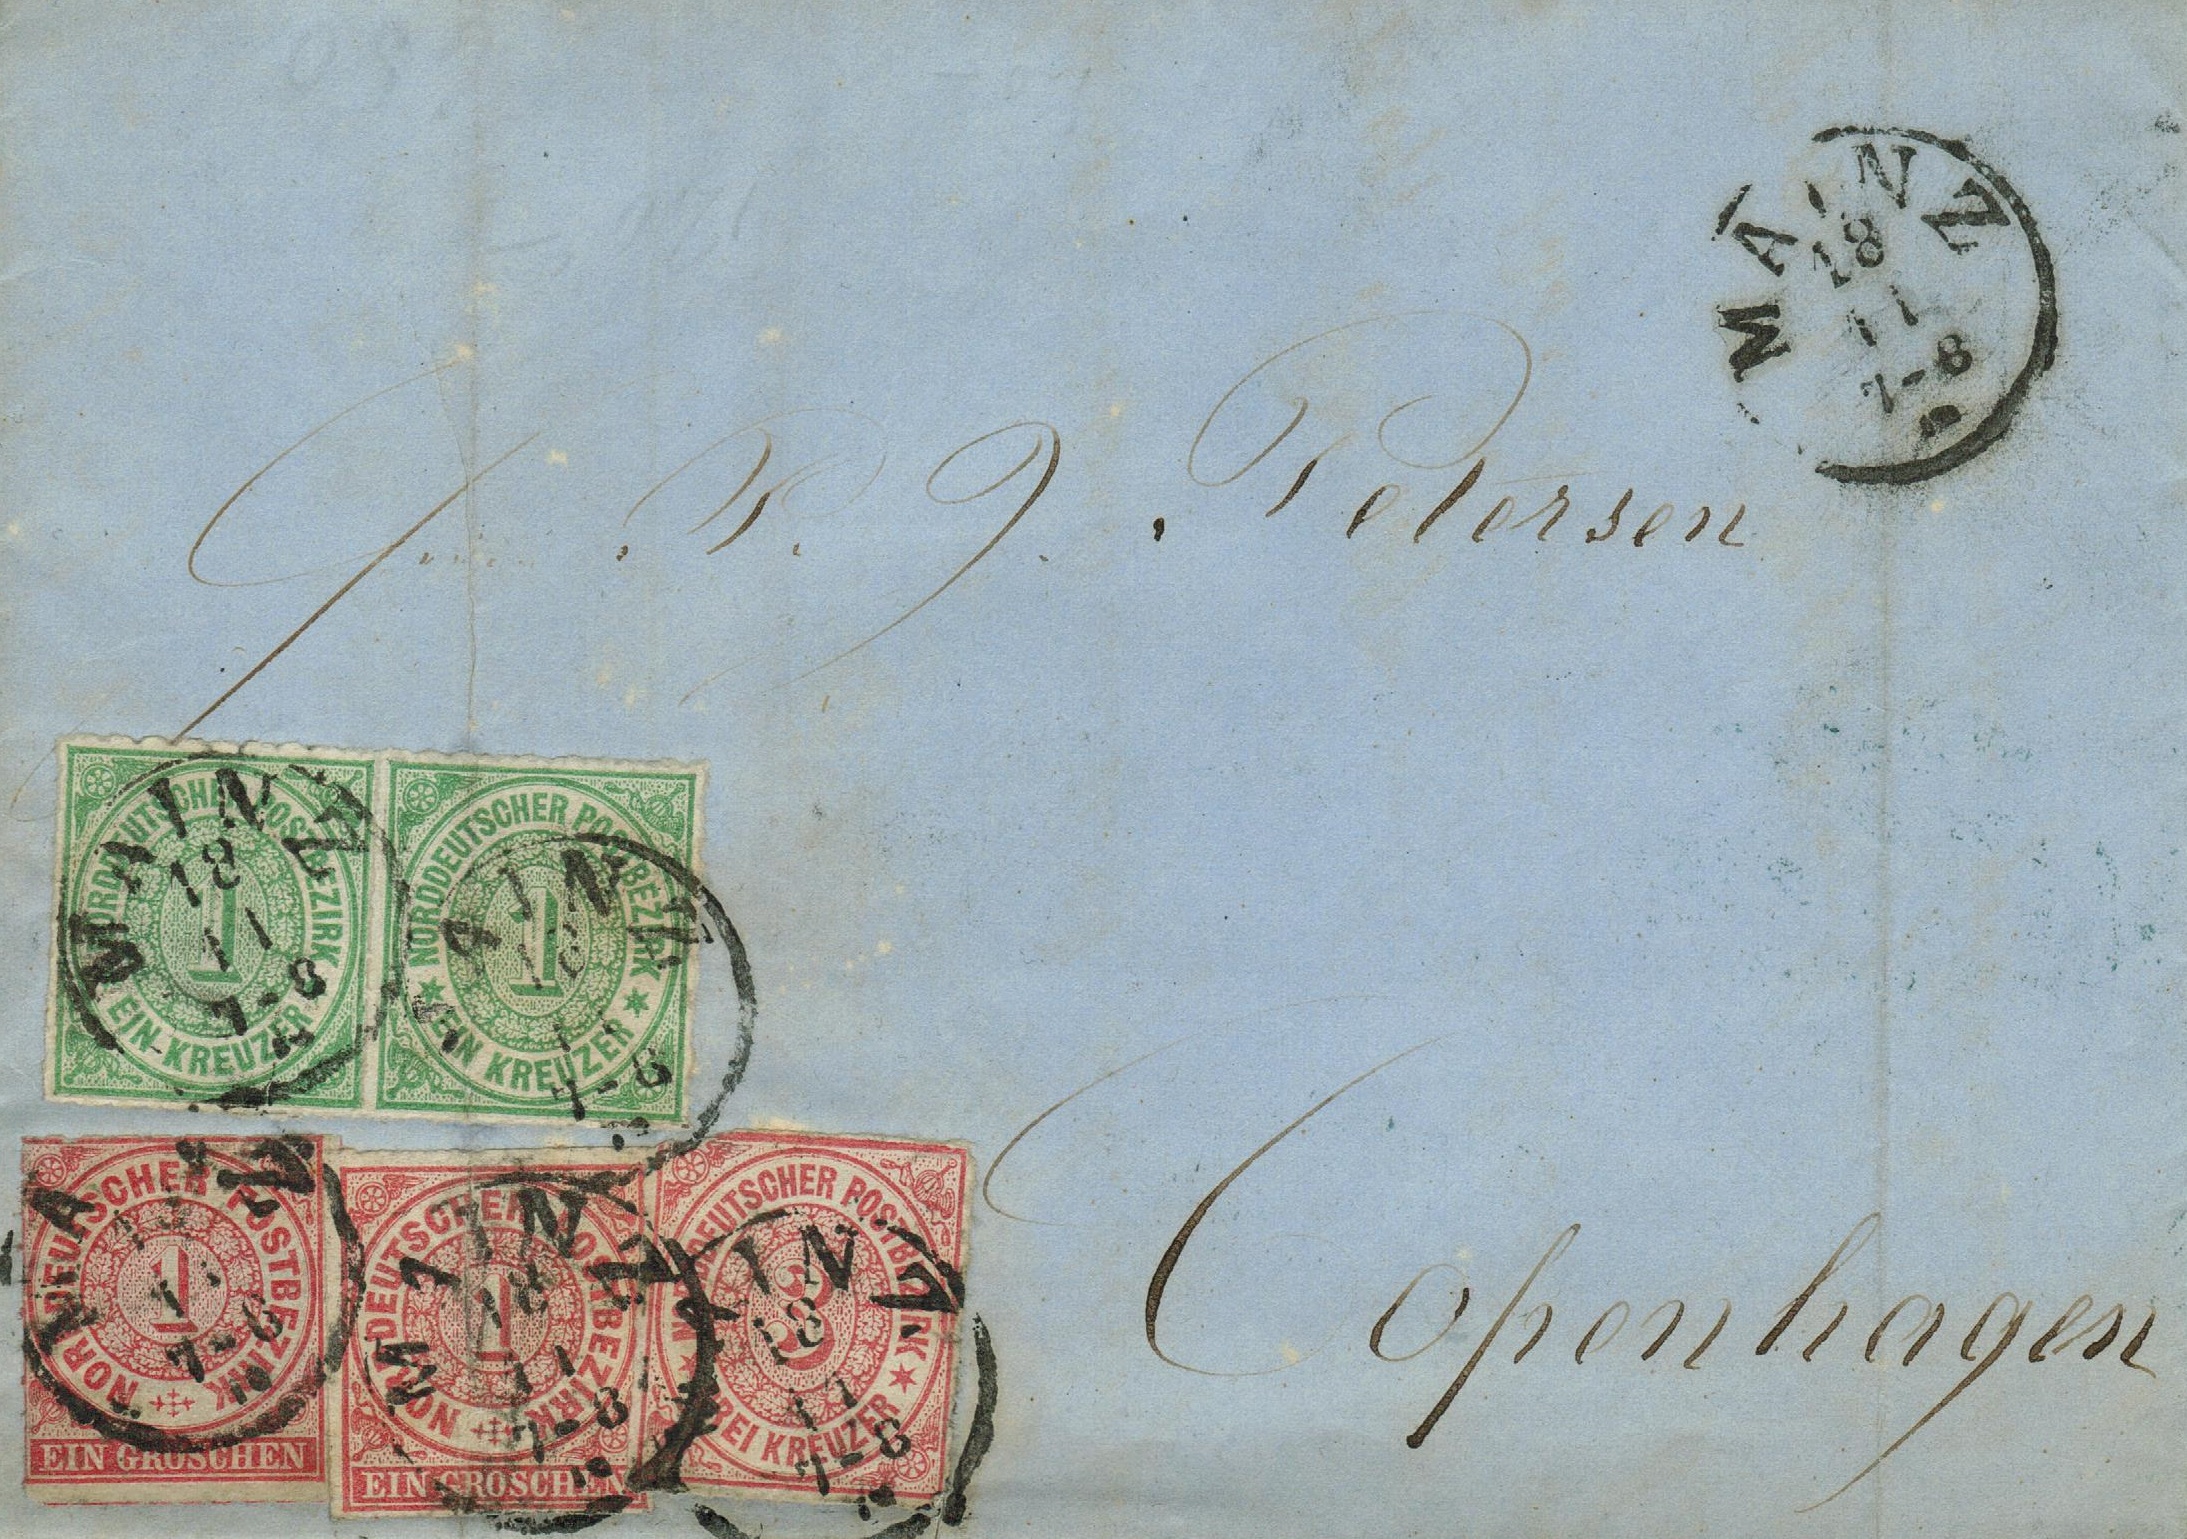 MAINZ
18
11
7-8
Petersen
NORDDEUTSCHER POSTBEZIRK
1
EIN KREUZER
MAINZ
18
11
7-8
NORDDEUTSCHER POSTBEZIRK
1
EIN KREUZER
MAINZ
18
11
7-8
Copenhagen
NORDDEUTSCHER POSTBEZIRK
1
EIN GROSCHEN
MAINZ
18
11
7-8
NORDDEUTSCHER POSTBEZIRK
1
EIN GROSCHEN
MAINZ
18
11
7-8
NORDDEUTSCHER POSTBEZIRK
3
DREI KREUZER
MAINZ
18
11
7-8